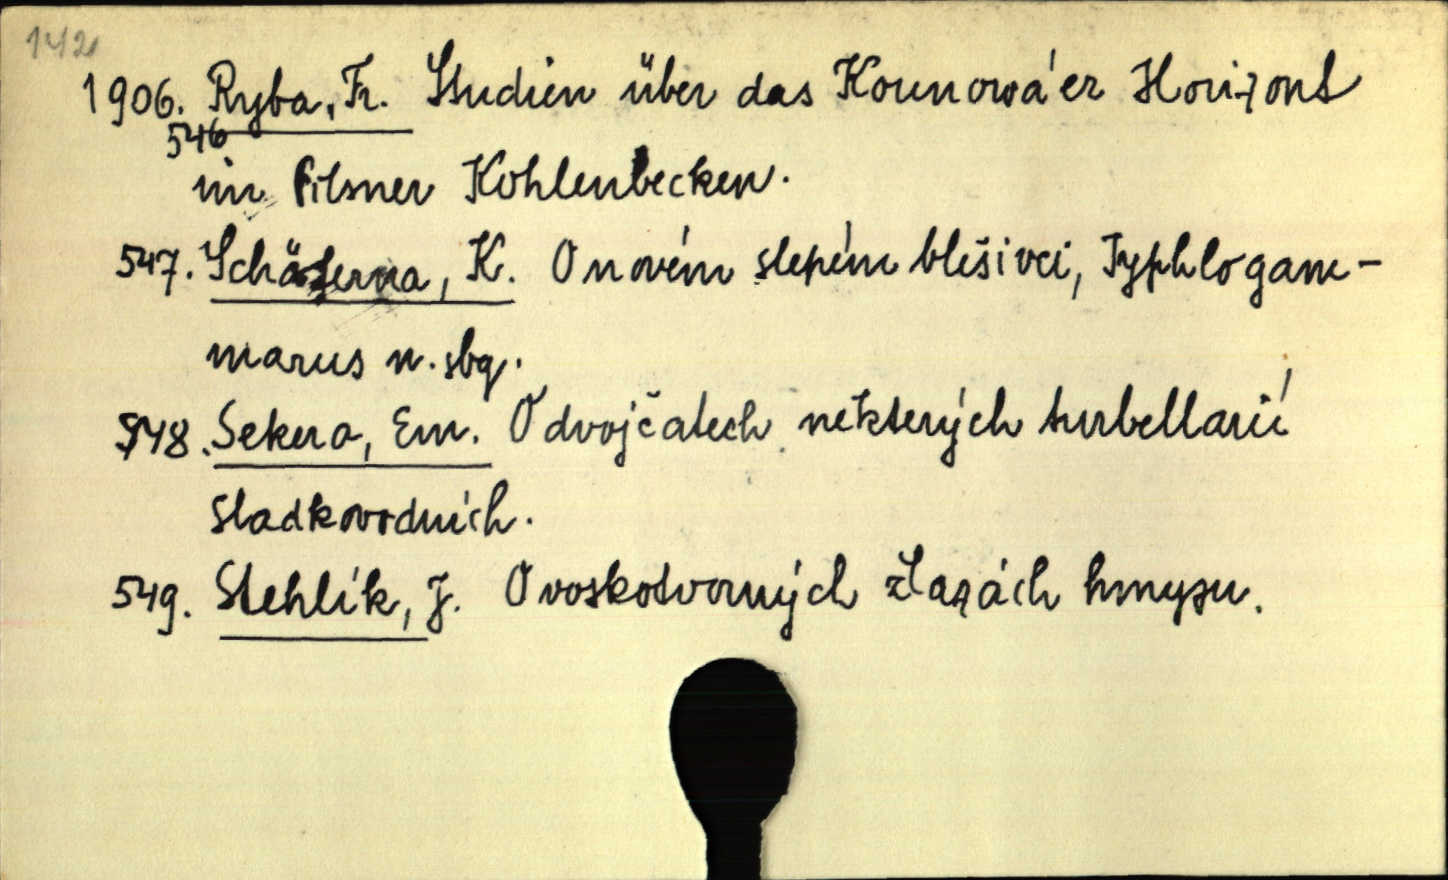 142
1906. Ryba, Fr. Studien über das Kounowá'er Horizont
546
im Pilsner Kohlenbecken.
547. Schäferna, K. O novém slepém blešivci, Typhlogam-
marus n. sbg.
548. Sekera, Em. O dvojčatech některých turbellarií
sladkovodních.
549. Stehlík, J. O voskotvorných žlazách hmyzu.